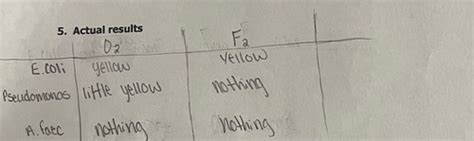 5. Actual results
O2 F2
E.coli yellow yellow
Pseudomonas little yellow nothing
A. faec nothing nothing